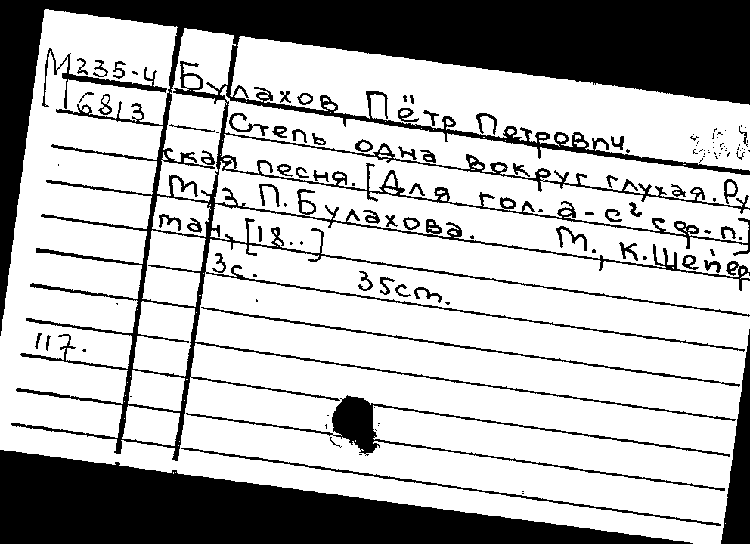 М235-4 Булахов, Пётр Петрович.
6813 Степь одна вокруг глухая. Ру
ская песня. [Для гол. a-c² с ф-п.]
Муз. П. Булахова. М., К. Шейер
ман, [18..]
3с. 35cm.
117.